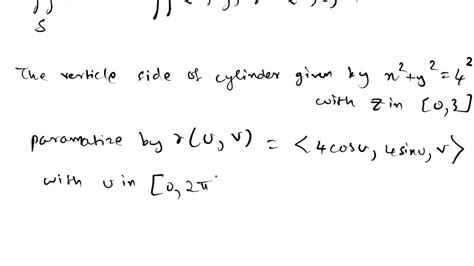 S
The verticle side of cylinder given by x²+y²=4²
with z in [0,3]
paramatize by r(u,v) = <4cosu, 4sinu, v>
with u in [0,2π